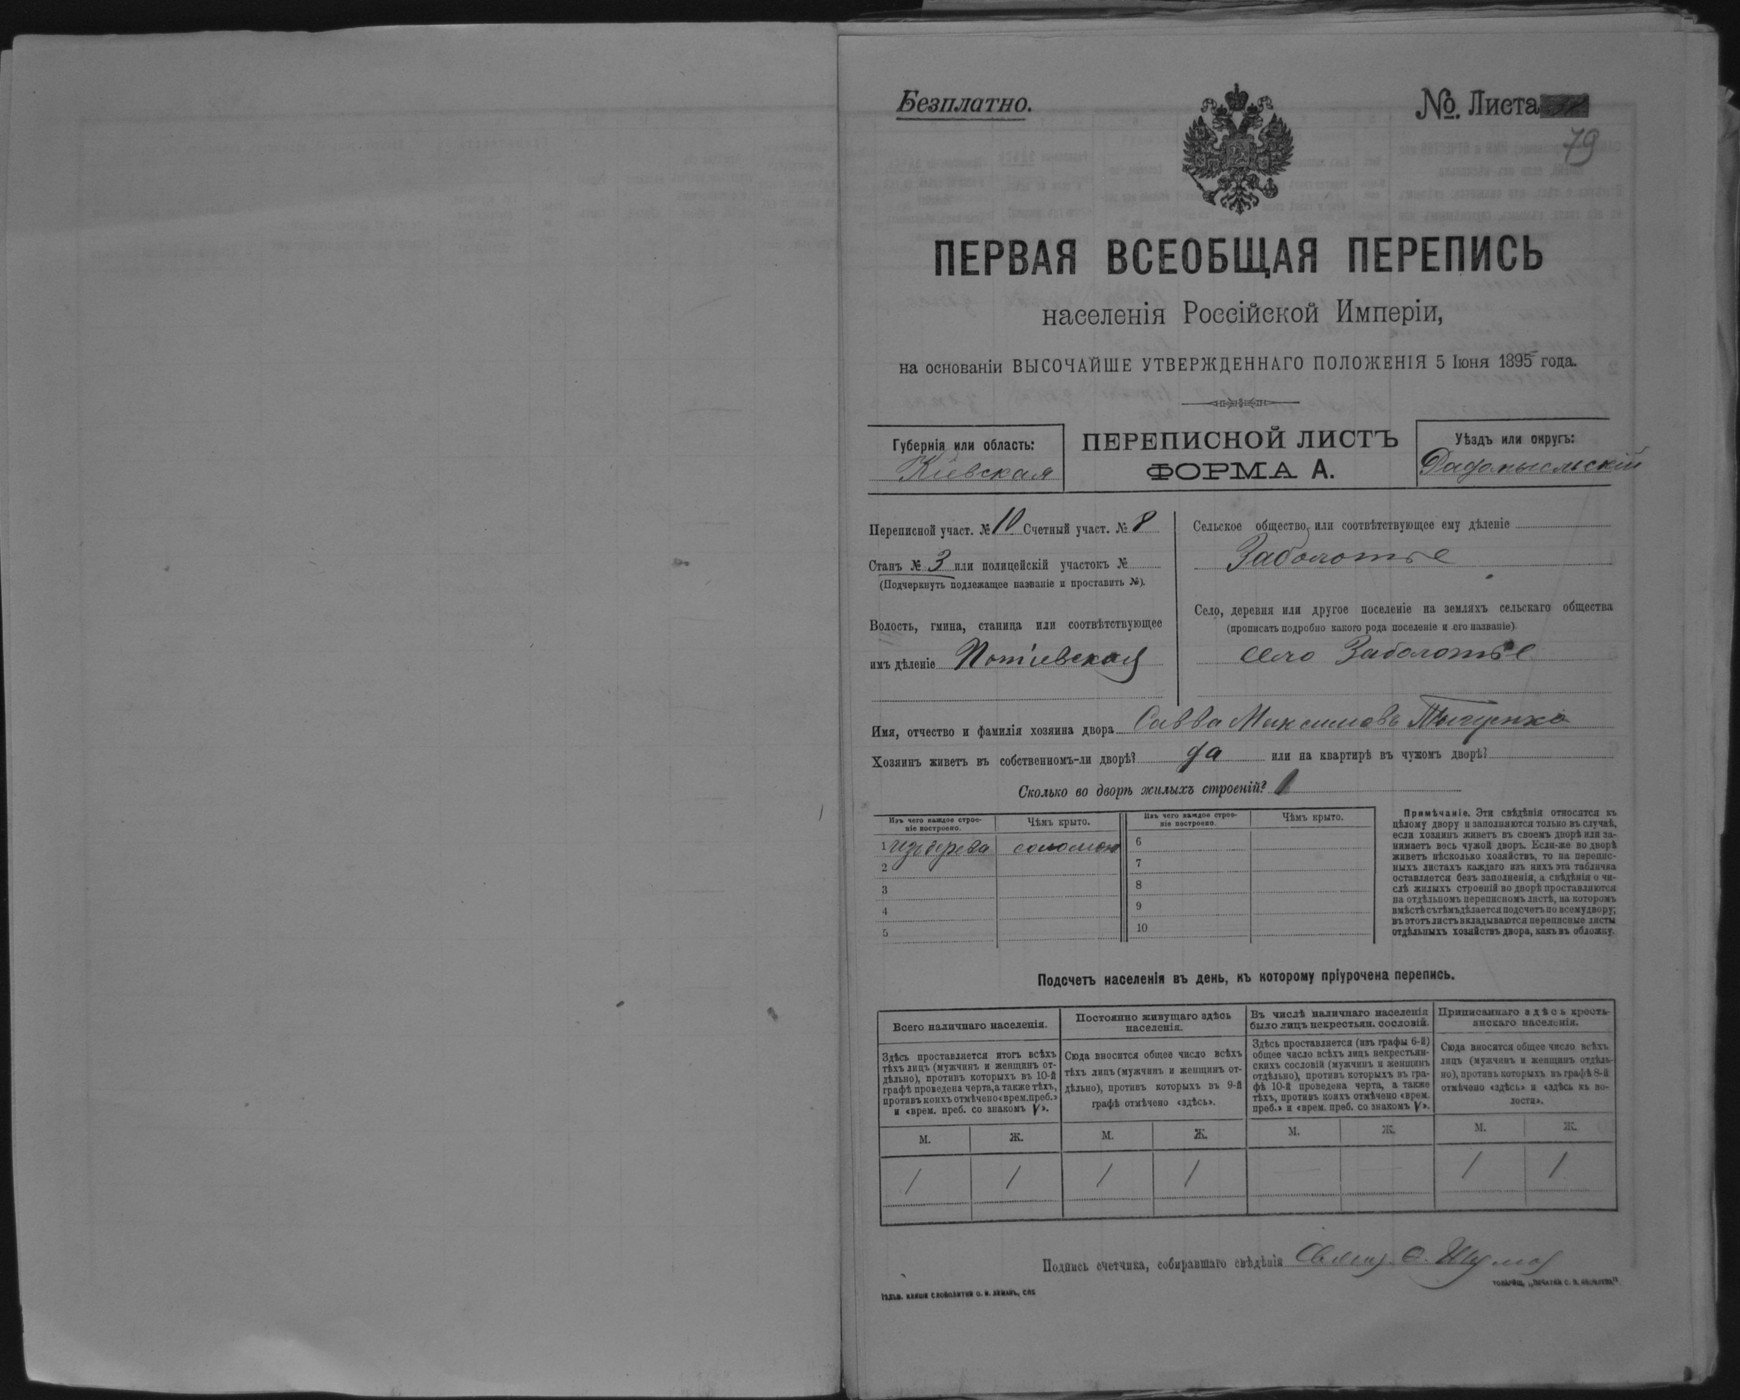 Безплатно.
№. Листа
79
ПЕРВАЯ ВСЕОБЩАЯ ПЕРЕПИСЬ
населенія Россійской Имперіи,
на основаніи ВЫСОЧАЙШЕ УТВЕРЖДЕННАГО ПОЛОЖЕНІЯ 5 Іюня 1895 года.
Губернія или область:
Кіевская
ПЕРЕПИСНОЙ ЛИСТЪ
ФОРМА А.
Уѣздъ или округъ:
Радомысльскій
Переписной участ. № 10 Счетный участ. № 8
Станъ № 3 или полицейскій участокъ №
(Подчеркнуть подлежащее названіе и проставить №).
Волость, гмина, станица или соотвѣтствующее
имъ дѣленіе Потіевская
Сельское общество, или соотвѣтствующее ему дѣленіе
Заболотье
Село, деревня или другое поселеніе на земляхъ сельскаго общества
(прописать подробно какого рода поселеніе и его названіе).
село Заболотье
Имя, отчество и фамилія хозяина двора Савва Максимовъ
Хозяинъ живетъ въ собственномъ-ли дворѣ? да или на квартирѣ въ чужомъ дворѣ?
Сколько во дворѣ жилыхъ строеній? 1
Изъ чего каждое строе-
ніе построено.
Чѣмъ крыто.
1 изъ дерева соломою
2
3
4
5
Изъ чего каждое строе-
ніе построено.
Чѣмъ крыто.
6
7
8
9
10
Примѣчаніе. Эти свѣдѣнія относятся къ
цѣлому двору и заполняются только въ случаѣ,
если хозяинъ живетъ въ своемъ дворѣ или за-
нимаетъ весь чужой дворъ. Если-же во дворѣ
живетъ нѣсколько хозяйствъ, то на перепис-
ныхъ листахъ каждаго изъ нихъ эта табличка
оставляется безъ заполненія, а свѣдѣнія о чи-
слѣ жилыхъ строеній во дворѣ проставляются
на отдѣльномъ переписномъ листѣ, на которомъ
вмѣстѣ съ тѣмъ дѣлается подсчетъ по всему двору;
въ этотъ листъ вкладываются переписные листы
отдѣльныхъ хозяйствъ двора, какъ въ обложку.
Подсчетъ населенія въ день, къ которому пріурочена перепись.
Всего наличнаго населенія.
Здѣсь проставляется итогъ всѣхъ
тѣхъ лицъ (мужчинъ и женщинъ от-
дѣльно), противъ которыхъ въ 10-й
графѣ проведена черта, а также тѣхъ,
противъ коихъ отмѣчено «врем. преб.»
и «врем. преб. со знакомъ V».
М. Ж.
1 1
Постоянно живущаго здѣсь
населенія.
Сюда вносится общее число всѣхъ
тѣхъ лицъ (мужчинъ и женщинъ от-
дѣльно), противъ которыхъ въ 9-й
графѣ отмѣчено «здѣсь».
М. Ж.
1 1
Въ числѣ наличнаго населенія
было лицъ некрестьян. сословій.
Здѣсь проставляется (изъ графы 6-й)
общее число всѣхъ лицъ некрестьян-
скихъ сословій (мужчинъ и женщинъ
отдѣльно), противъ которыхъ въ гра-
фѣ 10-й проведена черта, а также
тѣхъ, противъ коихъ отмѣчено «врем.
преб.» и «врем. преб. со знакомъ V».
М. Ж.
Приписаннаго здѣсь кресть-
янскаго населенія.
Сюда вносится общее число всѣхъ
лицъ (мужчинъ и женщинъ отдѣль-
но), противъ которыхъ въ графѣ 8-й
отмѣчено «здѣсь» и «здѣсь въ во-
лости».
М. Ж.
1 1
Подпись счетчика, собиравшаго свѣдѣнія